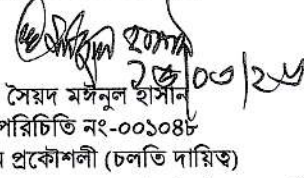 ২৬/০৩/২৫
সৈয়দ মঈনুল হাসান
পরিচিতি নং-০০১০৪৮
প্রকৌশলী (চলতি দায়িত্ব)